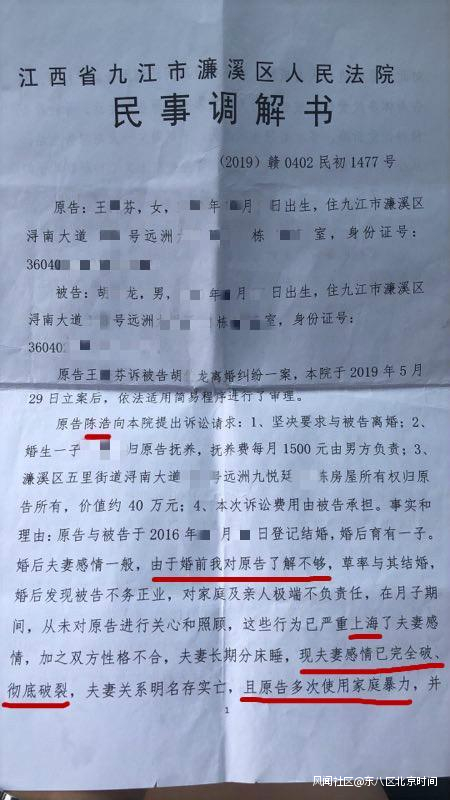 江西省九江市濂溪区人民法院
民事调解书
（2019）赣 0402 民初 1477 号
原告：王 芬，女， 年 月 日出生，住九江市濂溪区
浔南大道 号远洲 栋 室，身份证号：
36040
被告：胡 龙，男， 年 月 日出生，住九江市濂溪区
浔南大道 号远洲 栋 室，身份证号：
36040
原告王 芬诉被告胡 龙离婚纠纷一案，本院于 2019 年 5 月
29 日立案后，依法适用简易程序进行了审理。
原告陈浩向本院提出诉讼请求：1、坚决要求与被告离婚；2、
婚生一子 归原告抚养，抚养费每月 1500 元由男方负责；3、
濂溪区五里街道浔南大道 号远洲九悦廷 栋房屋所有权归原
告所有，价值约 40 万元；4、本次诉讼费用由被告承担。事实和
理由：原告与被告于 2016 年 月 日登记结婚，婚后育有一子。
婚后夫妻感情一般，由于婚前我对原告了解不够，草率与其结婚，
婚后发现被告不务正业，对家庭及亲人极端不负责任，在月子期
间，从未对原告进行关心和照顾，这些行为已严重上海了夫妻感
情，加之双方性格不合，夫妻长期分床睡，现夫妻感情已完全破、
彻底破裂，夫妻关系明名存实亡，且原告多次使用家庭暴力，并
1
风闻社区@东八区北京时间